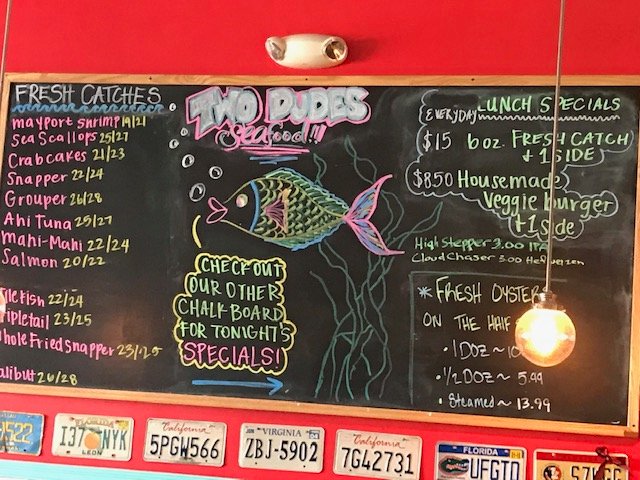 FRESH CATCHES
mayport shrimp 19/21
Sea Scallops 25/27
Crabcakes 21/23
Snapper 22/24
Grouper 26/28
Ahi Tuna 25/27
Mahi-Mahi 22/24
Salmon 20/22
22/24
tripletail 23/25
Whole Fried Snapper
halibut 26/28
TWO DUDES
Seafood!!!
CHECK OUT
OUR OTHER
CHALK BOARD
FOR TONIGHT'S
SPECIALS!
LUNCH SPECIALS
EVERYDAY
$15 6 oz. FRESH CATCH
+ 1 SIDE
$8.50 Housemade
Veggie burger
+ 1 Side
High Stepper 3.00 IPA
Cloud Chaser 3.00 Hefweizen
* FRESH OYSTERS
ON THE HALF
• 1 DOZ ~
• 1/2 DOZ ~ 5.99
• Steamed ~ 13.99
I37 NYK
LEON
California
5PGW566
VIRGINIA
ZBJ-5902
California
7G42731
FLORIDA
UFGTO